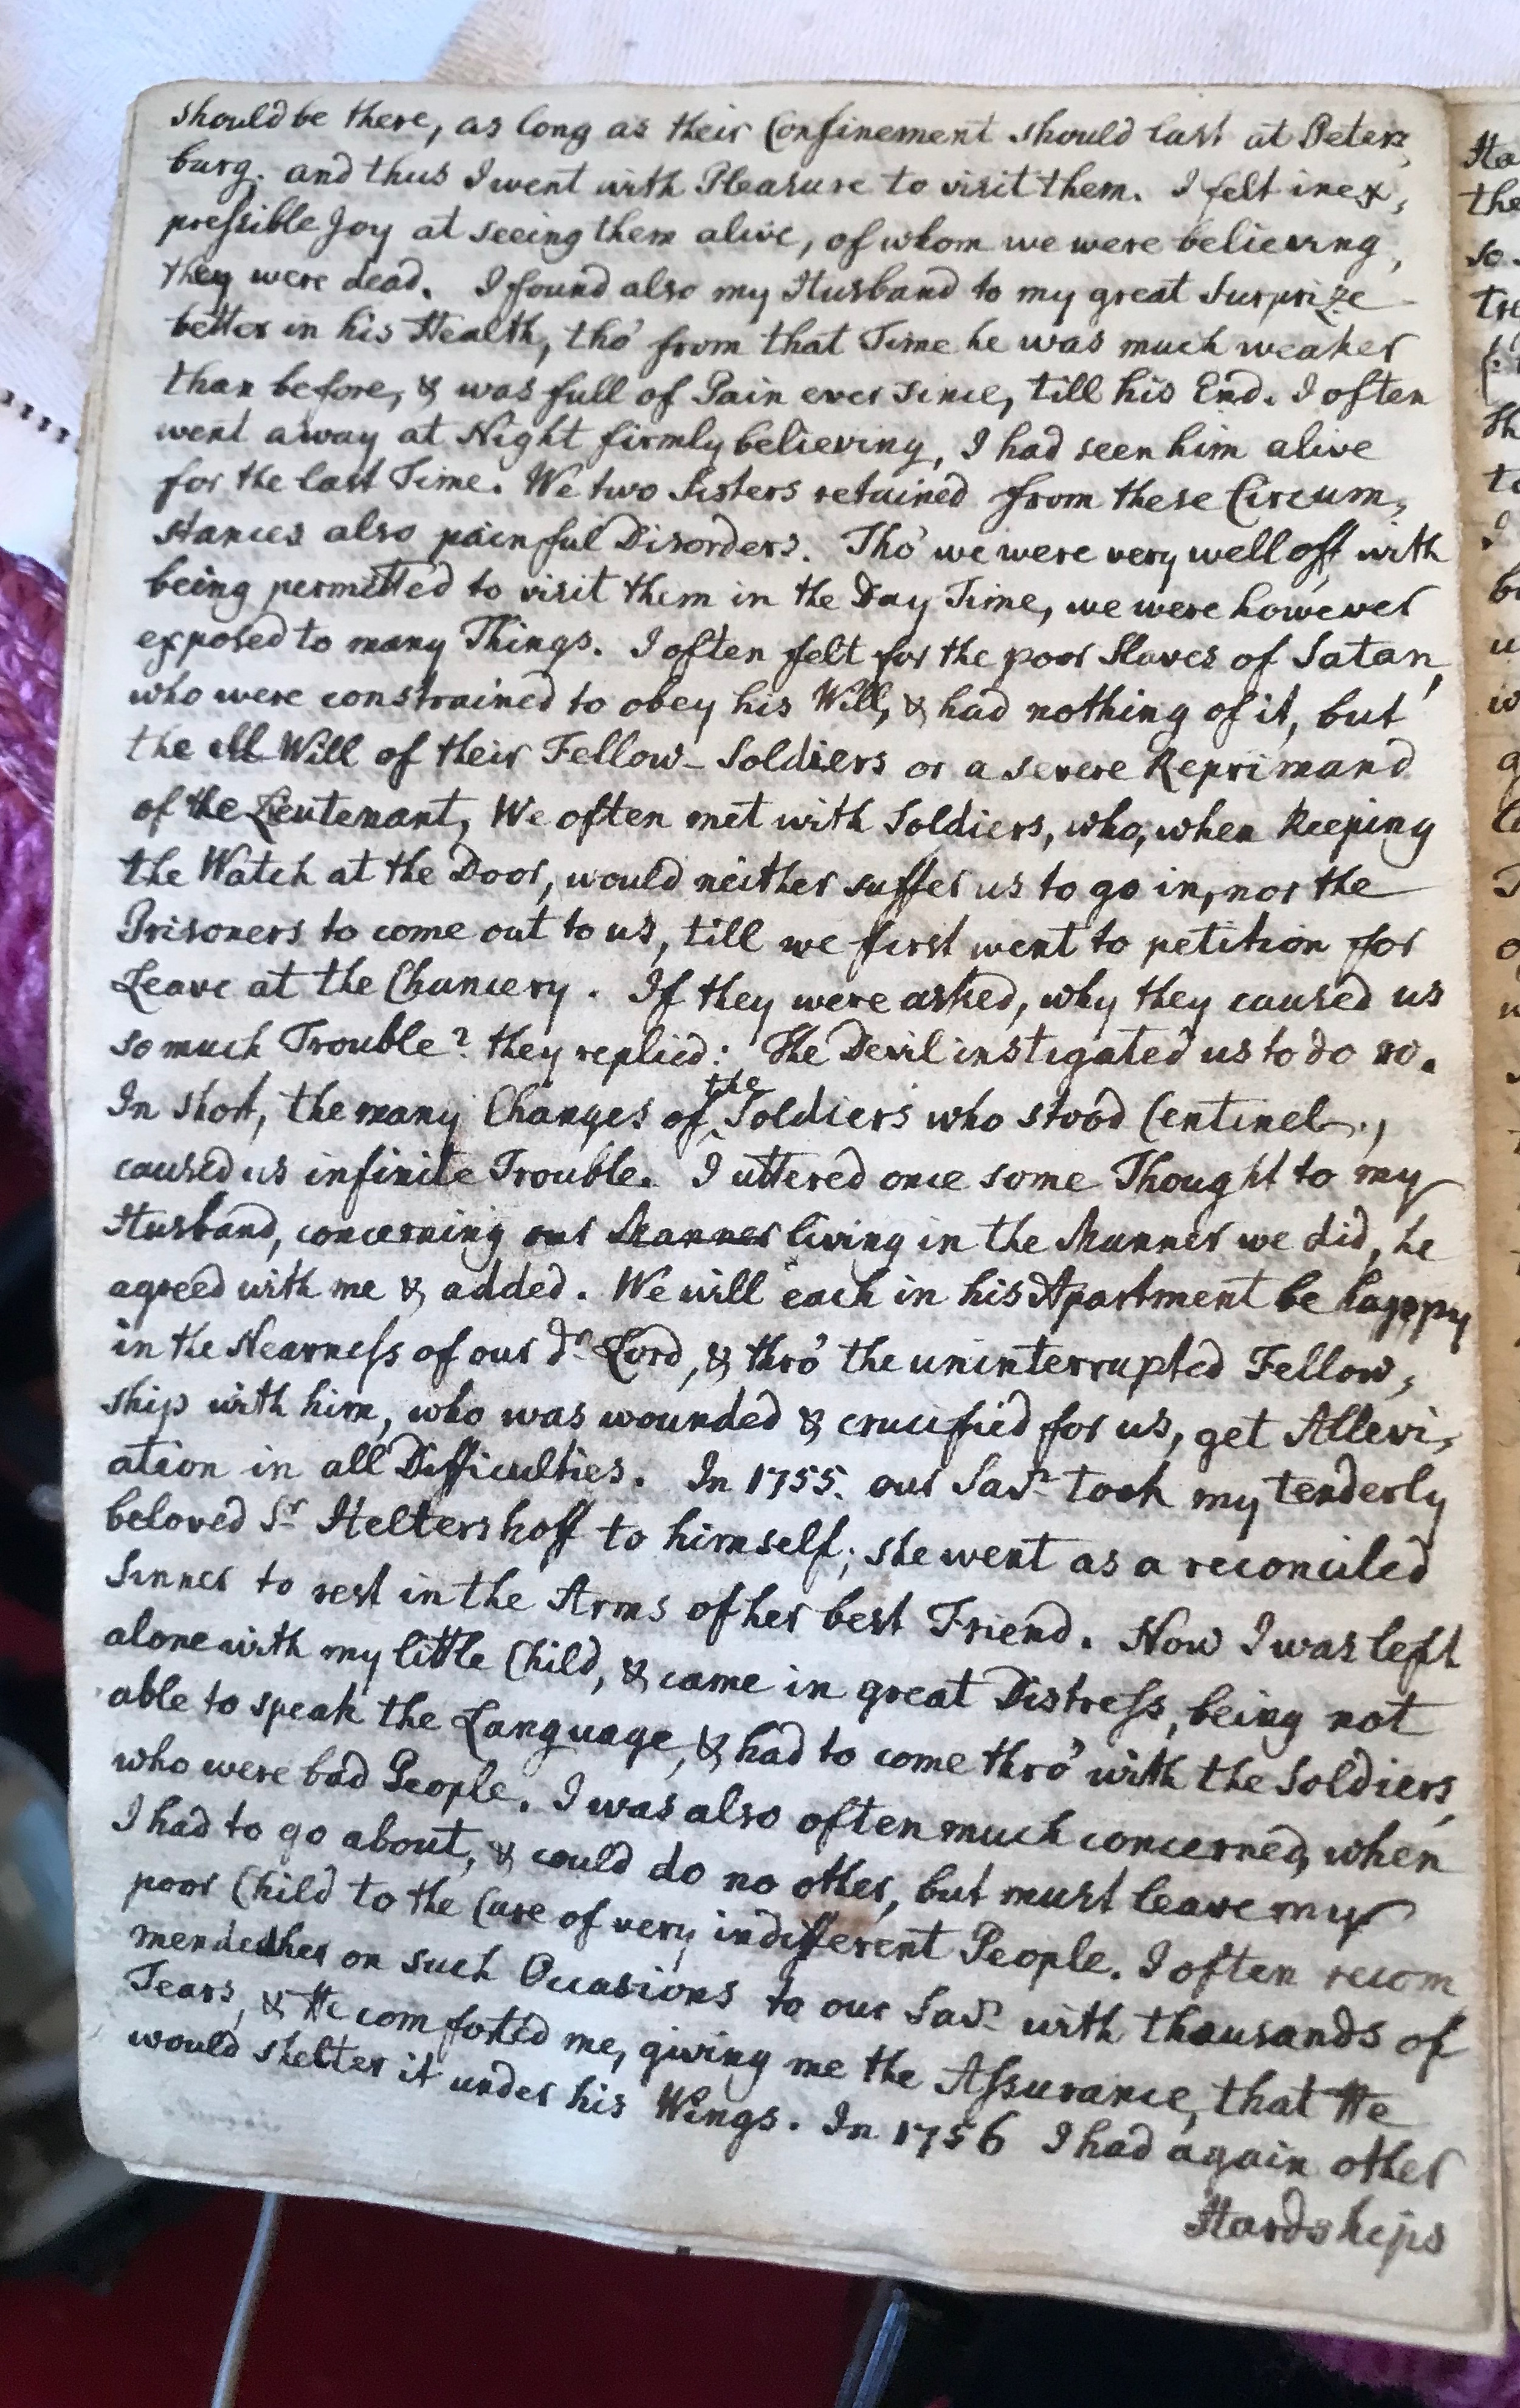 should be there, as long as their Confinement should last at Peters,
burg. and thus I went with Pleasure to visit them. I felt inex,
pressible Joy at seeing them alive, of whom we were believing,
they were dead. I found also my Husband to my great Surprize
better in his Health, tho' from that Time he was much weaker
than before, & was full of Pain ever since, till his End. I often
went away at Night firmly believing, I had seen him alive
for the last Time. We two Sisters retained from these Circum,
stances also painful Disorders. Tho' we were very well off with
being permitted to visit them in the Day Time, we were however
exposed to many Things. I often felt for the poor Slaves of Satan,
who were constrained to obey his Will, & had nothing of it, but
the ill Will of their Fellow-Soldiers or a severe Reprimand
of the Lieutenant, We often met with Soldiers, who, when keeping
the Watch at the Door, would neither suffer us to go in, nor the
Prisoners to come out to us, till we first went to petition for
Leave at the Chancery. If they were asked, why they caused us
so much Trouble? they replied: The Devil instigated us to do so.
In short, the many Changes of the Soldiers who stood Centinel.,
caused us infinite Trouble. I uttered once some Thought to my
Husband, concerning our Manner living in the Manner we did, he
agreed with me & added. We will each in his Apartment be happpy
in the Nearness of our dr Lord, & thro' the uninterrupted Fellow,
ship with him, who was wounded & crucified for us, get Allevi,
ation in all Difficulties. In 1755. our Savr took my tenderly
beloved Sr Heltershoff to himself; she went as a reconciled
Sinner to rest in the Arms of her best Friend. Now I was left
alone with my little Child, & came in great Distress, being not
able to speak the Language, & had to come thro' with the Soldiers,
who were bad People. I was also often much concerned, when
I had to go about, & could do no other, but must leave my
poor Child to the Care of very indifferent People. I often recom
mended her on such Occasions to our Savr with thousands of
Tears, & He comforted me, giving me the Assurance, that He
would shelter it under his Wings. In 1756 I had again other
Hardships